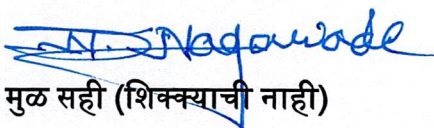 N. S. Nagawade
मुळ सही (शिक्क्याची नाही)